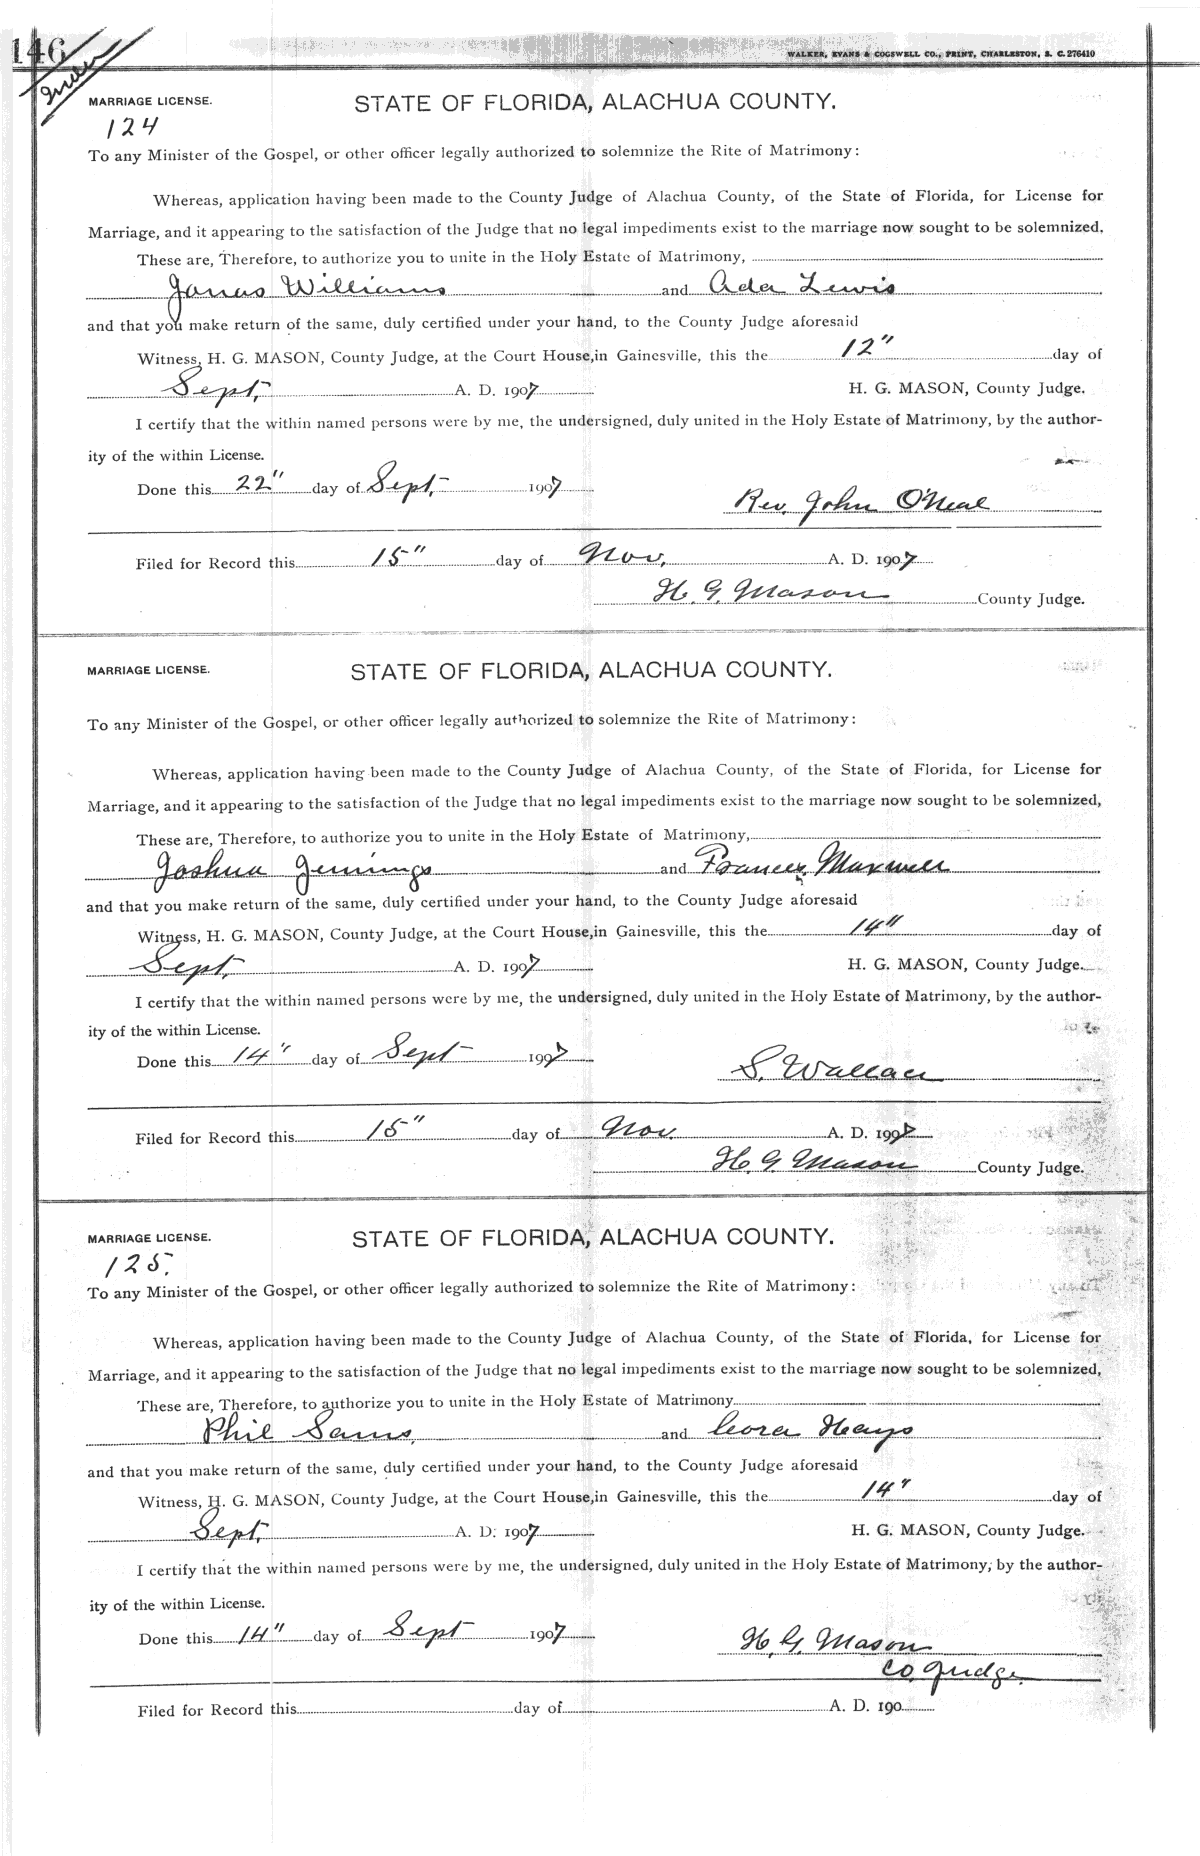 146
WALKER, EVANS & COGSWELL CO., PRINT, CHARLESTON, S. C. 276410
MARRIAGE LICENSE. STATE OF FLORIDA, ALACHUA COUNTY.
124
To any Minister of the Gospel, or other officer legally authorized to solemnize the Rite of Matrimony:
Whereas, application having been made to the County Judge of Alachua County, of the State of Florida, for License for
Marriage, and it appearing to the satisfaction of the Judge that no legal impediments exist to the marriage now sought to be solemnized,
These are, Therefore, to authorize you to unite in the Holy Estate of Matrimony,
Janas Williams and Ada Lewis
and that you make return of the same, duly certified under your hand, to the County Judge aforesaid
Witness, H. G. MASON, County Judge, at the Court House, in Gainesville, this the 12" day of
Sept, A. D. 1907 H. G. MASON, County Judge.
I certify that the within named persons were by me, the undersigned, duly united in the Holy Estate of Matrimony, by the author-
ity of the within License.
Done this 22" day of Sept, 1907
Rev. John O'Neal
Filed for Record this 15" day of Nov, A. D. 1907
H. G. Mason County Judge.
MARRIAGE LICENSE. STATE OF FLORIDA, ALACHUA COUNTY.
To any Minister of the Gospel, or other officer legally authorized to solemnize the Rite of Matrimony:
Whereas, application having been made to the County Judge of Alachua County, of the State of Florida, for License for
Marriage, and it appearing to the satisfaction of the Judge that no legal impediments exist to the marriage now sought to be solemnized,
These are, Therefore, to authorize you to unite in the Holy Estate of Matrimony,
Joshua Jennings and Frances Maxwell
and that you make return of the same, duly certified under your hand, to the County Judge aforesaid
Witness, H. G. MASON, County Judge, at the Court House, in Gainesville, this the 14" day of
Sept, A. D. 1907 H. G. MASON, County Judge.
I certify that the within named persons were by me, the undersigned, duly united in the Holy Estate of Matrimony, by the author-
ity of the within License.
Done this 14" day of Sept 1907
S. Wallace
Filed for Record this 15" day of Nov. A. D. 1907
H. G. Mason County Judge.
MARRIAGE LICENSE. STATE OF FLORIDA, ALACHUA COUNTY.
125.
To any Minister of the Gospel, or other officer legally authorized to solemnize the Rite of Matrimony:
Whereas, application having been made to the County Judge of Alachua County, of the State of Florida, for License for
Marriage, and it appearing to the satisfaction of the Judge that no legal impediments exist to the marriage now sought to be solemnized,
These are, Therefore, to authorize you to unite in the Holy Estate of Matrimony
Phil Sams, and Cora Hays
and that you make return of the same, duly certified under your hand, to the County Judge aforesaid
Witness, H. G. MASON, County Judge, at the Court House, in Gainesville, this the 14" day of
Sept, A. D. 1907 H. G. MASON, County Judge.
I certify that the within named persons were by me, the undersigned, duly united in the Holy Estate of Matrimony, by the author-
ity of the within License.
Done this 14" day of Sept 1907
H. G. Mason
Co. Judge.
Filed for Record this day of A. D. 190